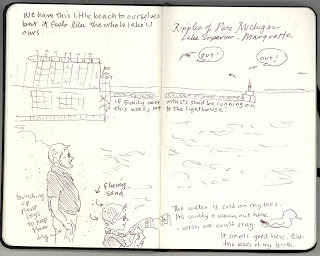 We have this little beach to ourselves
but it feels like the whole lake is
ours.
Ripples of Pure Michigan
Lake Superior - Marquette
out!
out!
if Emily were with us she'd be running on
this wall, out to the lighthouse.
Flying
sand
bunching
up
pant
legs
to keep
them
dry
The water is cold on my toes.
Its windy & warm out here
I wish we could stay.
It smells good here, like
the lakes of my youth.